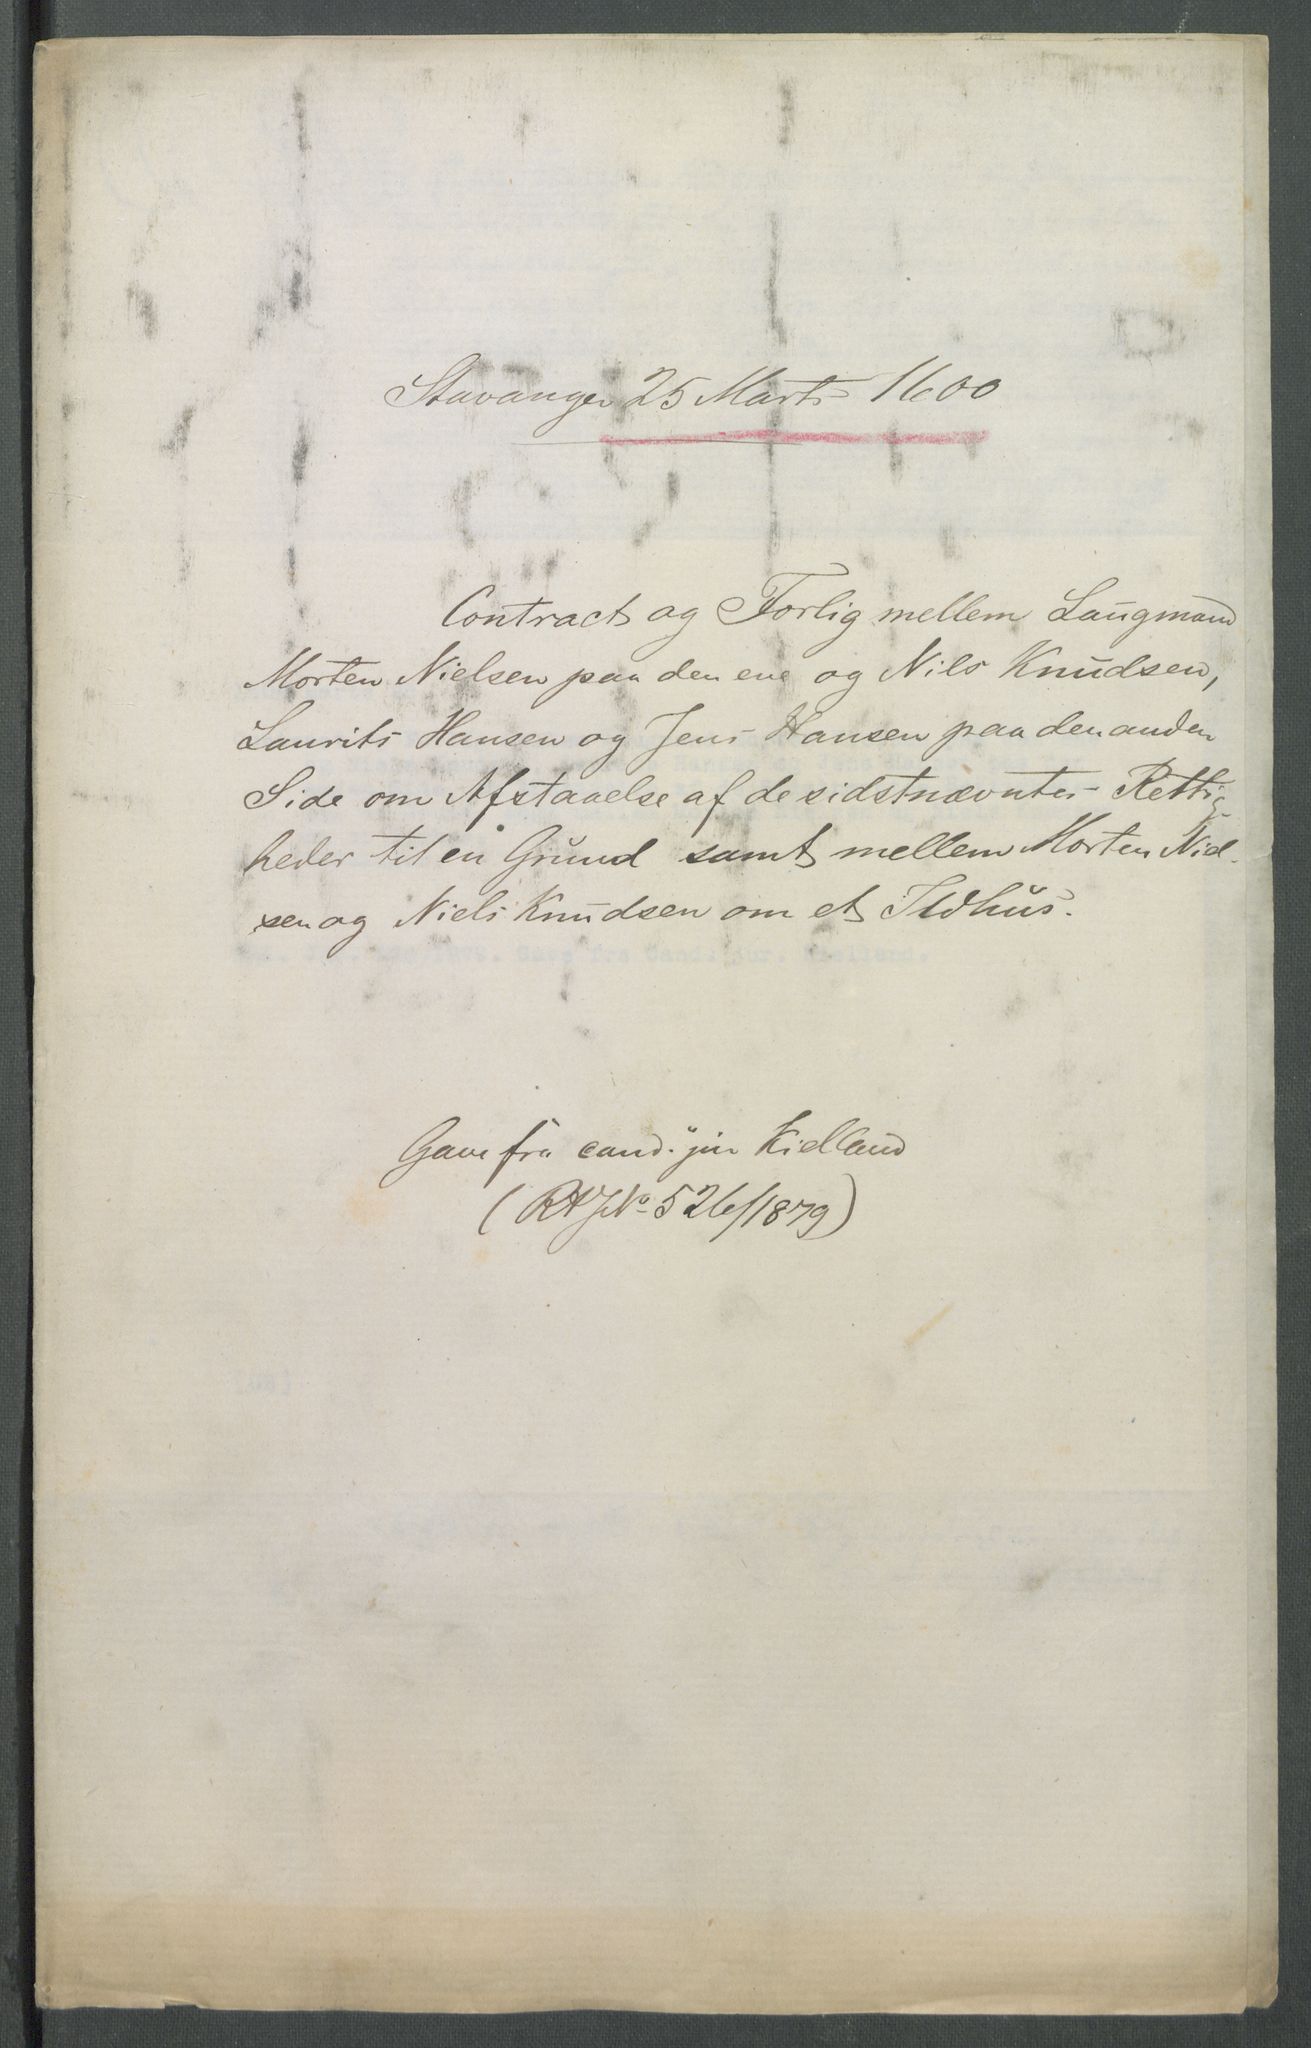 Stavanger 25 Marts 1600
Contract og Forlig mellem Laugmand
Morten Nielsen paa den ene og Nils Knudsen,
Laurits Hansen og Jens Hansen paa den anden
Side om Afstaaelse af de sidstnævntes Rettig-
heder til en Grund samt mellem Morten Niel-
sen og Niels Knudsen om et Ildhus.
Gave fra cand. jur Kielland
(RA J No 526/1879)